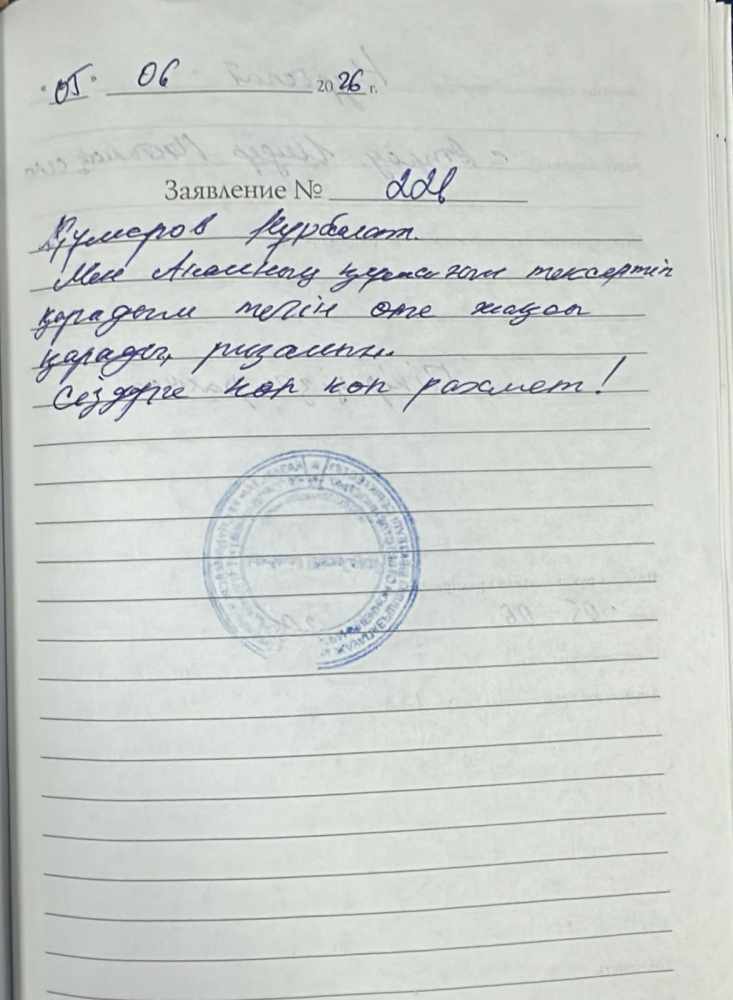 "05" 06 2026 г.
Заявление № 226
Құмаров Нурболат.
Мен Анамның тексертіп
қарадым тегін өте жақсы
қарады, ризамын.
Сіздерге көп көп рахмет!